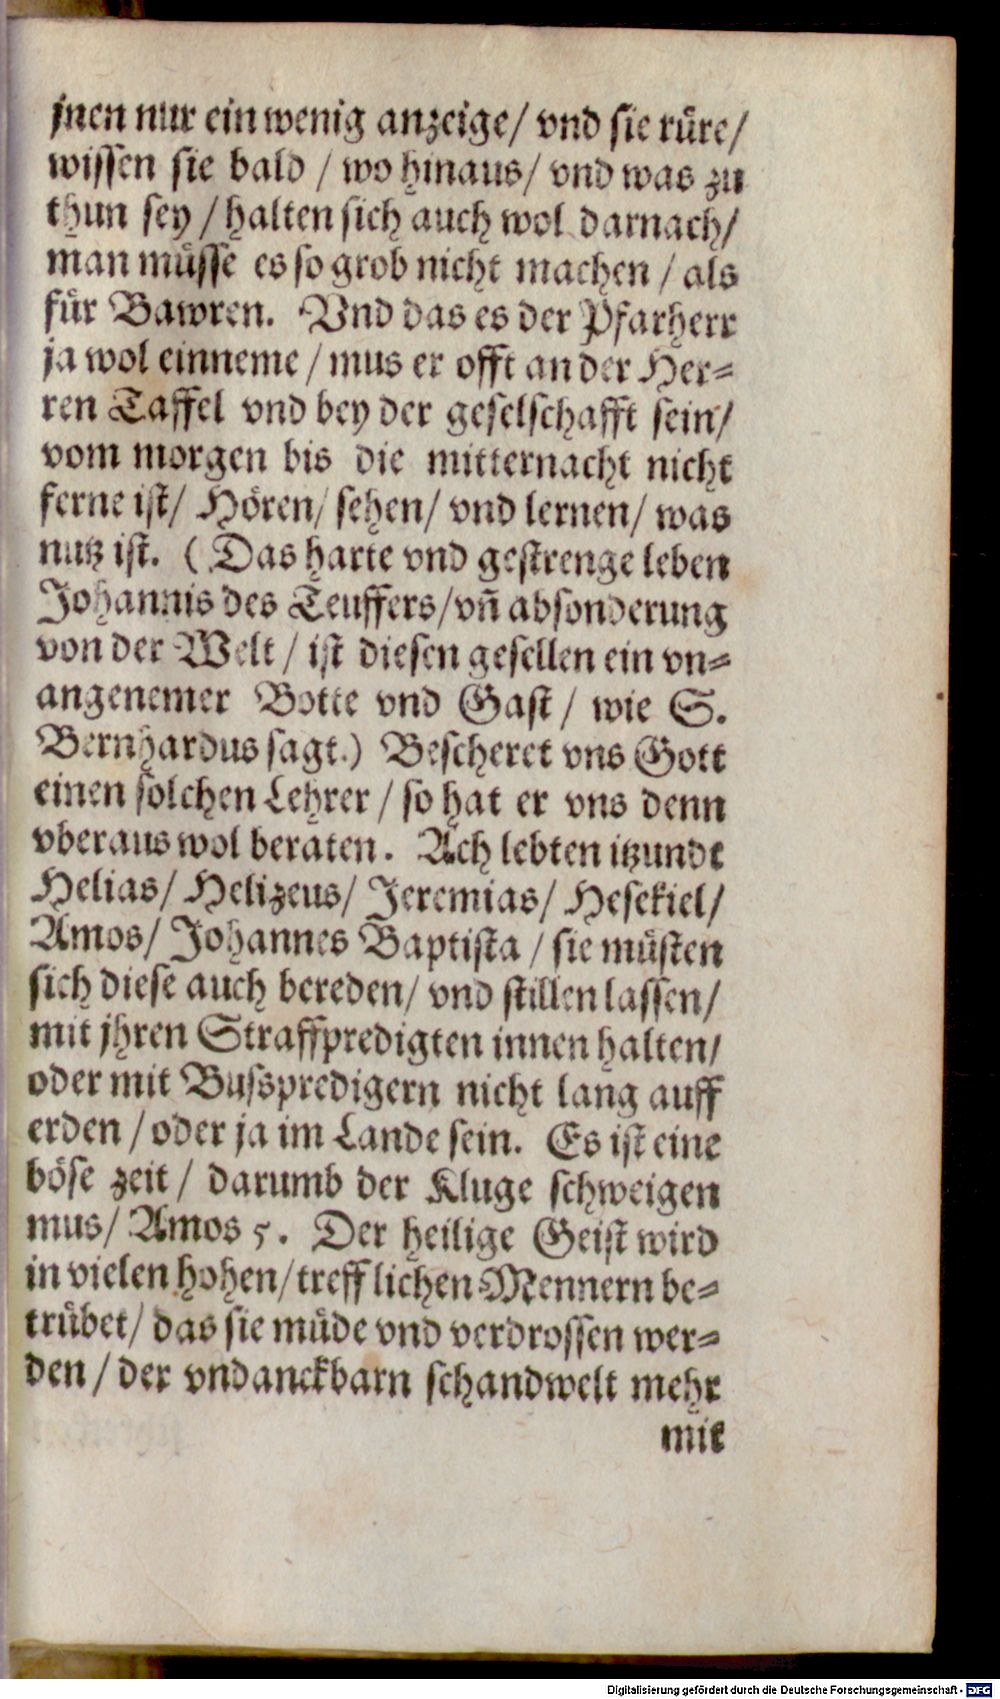 jnen nur ein wenig anzeige/ vnd sie rüre/
wissen sie bald / wo hinaus/ vnd was zu
thun sey / halten sich auch wol darnach/
man müsse es so grob nicht machen / als
für Bawren. Vnd das es der Pfarherr
ja wol einneme / mus er offt an der Her=
ren Taffel vnd bey der geselschafft sein/
vom morgen bis die mitternacht nicht
ferne ist/ Hören/ sehen/ vnd lernen/ was
nutz ist. (Das harte vnd gestrenge leben
Johannis des Teuffers/vn̄ absonderung
von der Welt / ist diesen gesellen ein vn=
angenemer Botte vnd Gast / wie S.
Bernhardus sagt.) Bescheret vns Gott
einen solchen Lehrer / so hat er vns denn
vberaus wol beraten. Ach lebten itzundt
Helias/ Helizeus/ Jeremias/ Hesekiel/
Amos/ Johannes Baptista / sie müsten
sich diese auch bereden/ vnd stillen lassen/
mit jhren Straffpredigten innen halten/
oder mit Busspredigern nicht lang auff
erden / oder ja im Lande sein. Es ist eine
böse zeit / darumb der Kluge schweigen
mus/ Amos 5. Der heilige Geist wird
in vielen hohen/ trefflichen Mennern be=
trübet/ das sie müde vnd verdrossen wer=
den / der vndanckbarn schandwelt mehr
mit
Digitalisierung gefördert durch die Deutsche Forschungsgemeinschaft - DFG